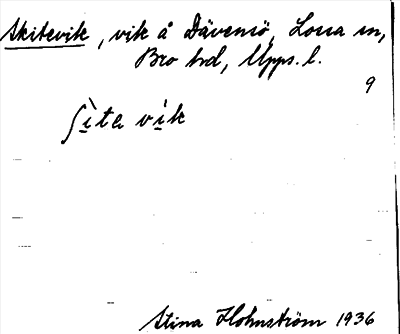 Skitevik, vik å Dävensö, Lossa sn,
Bro hd, Upps. l.
9
ʃìte vìk
Stina Holmström 1936